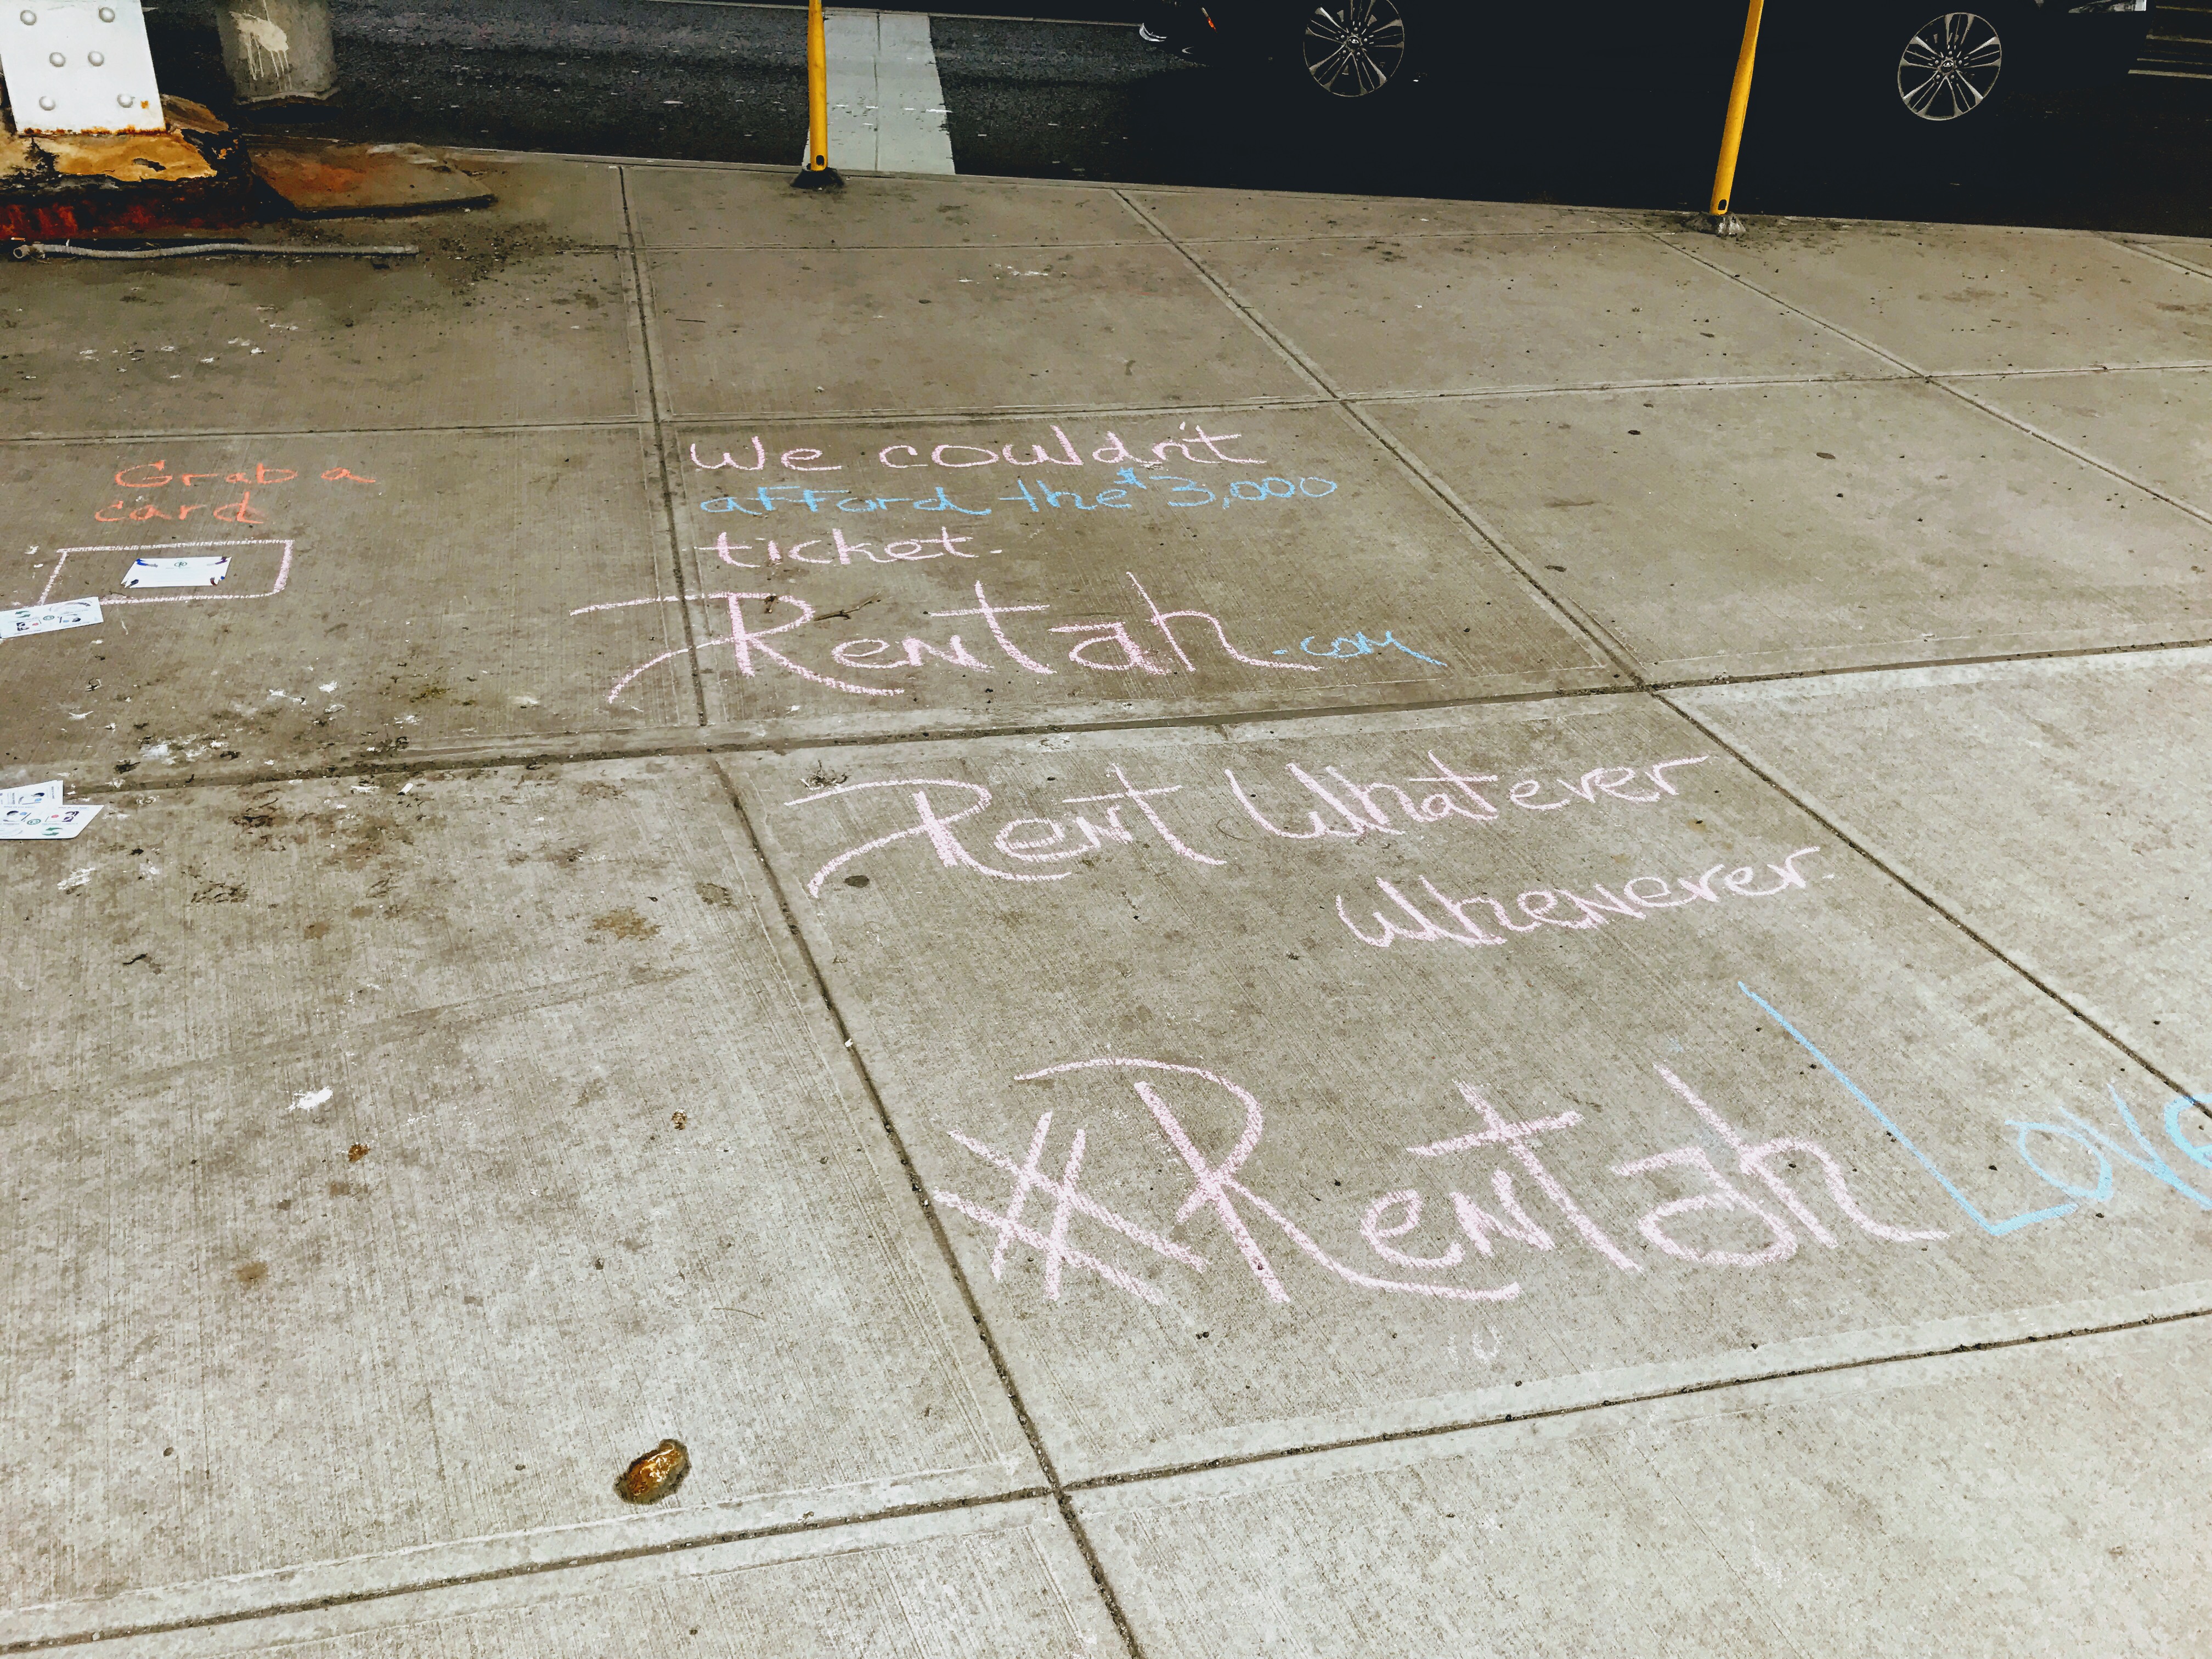 Grab a
card
We couldn't
afford the $3,000
ticket.
Rentah.com
Rent Whatever
Whenever.
#RentahLove